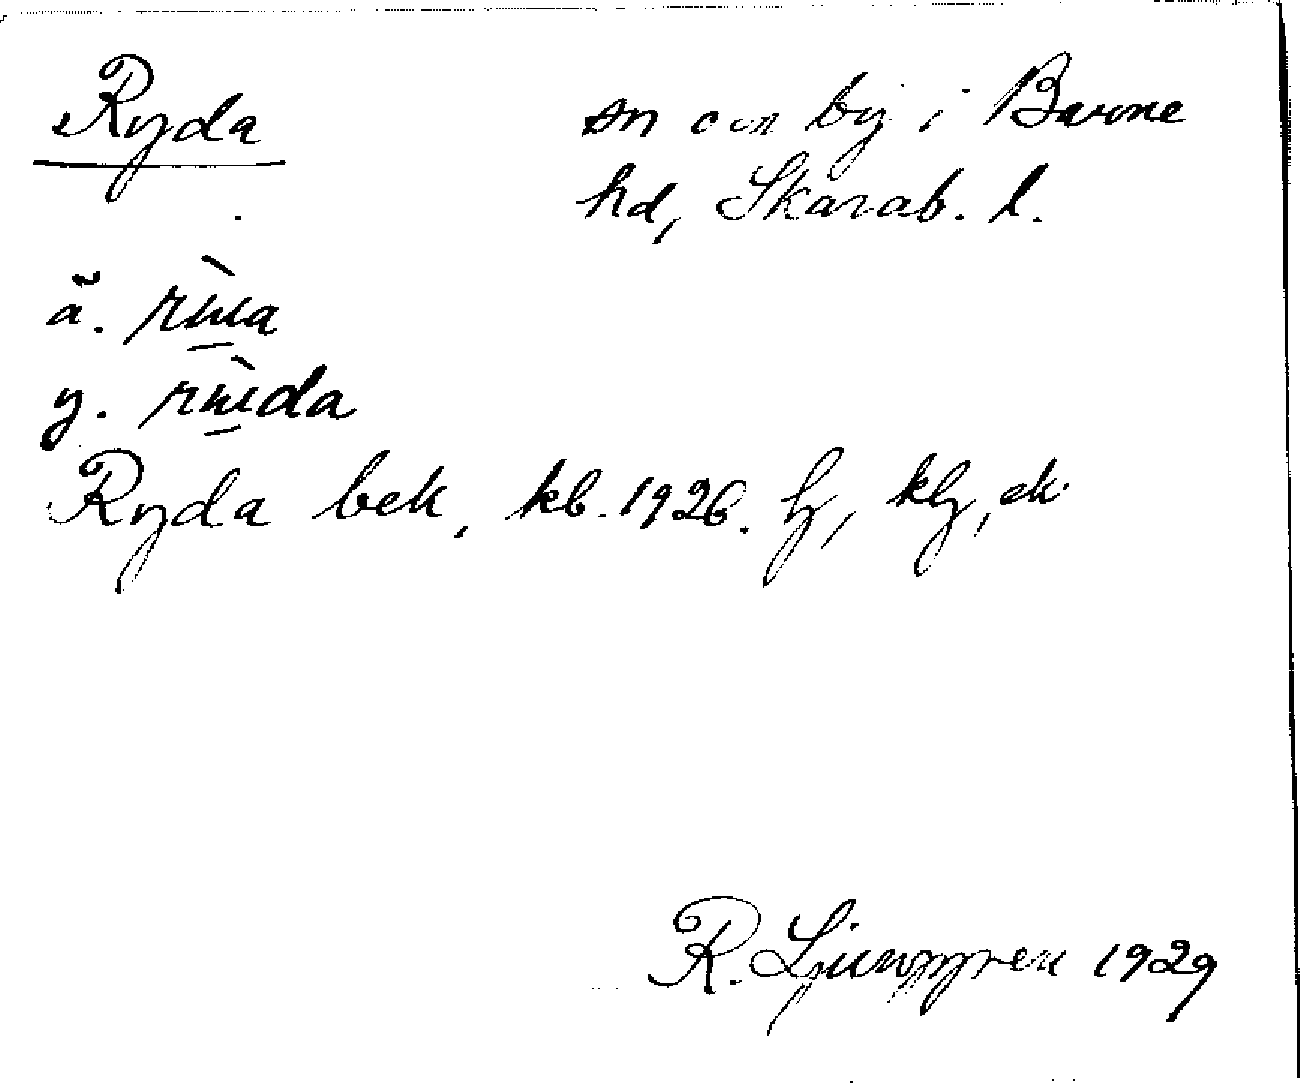 Ryda
sn och by i Barne
hd, Skarab. l.
ä.
y.
Ryda bek, kb. 1926. hz, klz, ek
R. Ljunggren 1929